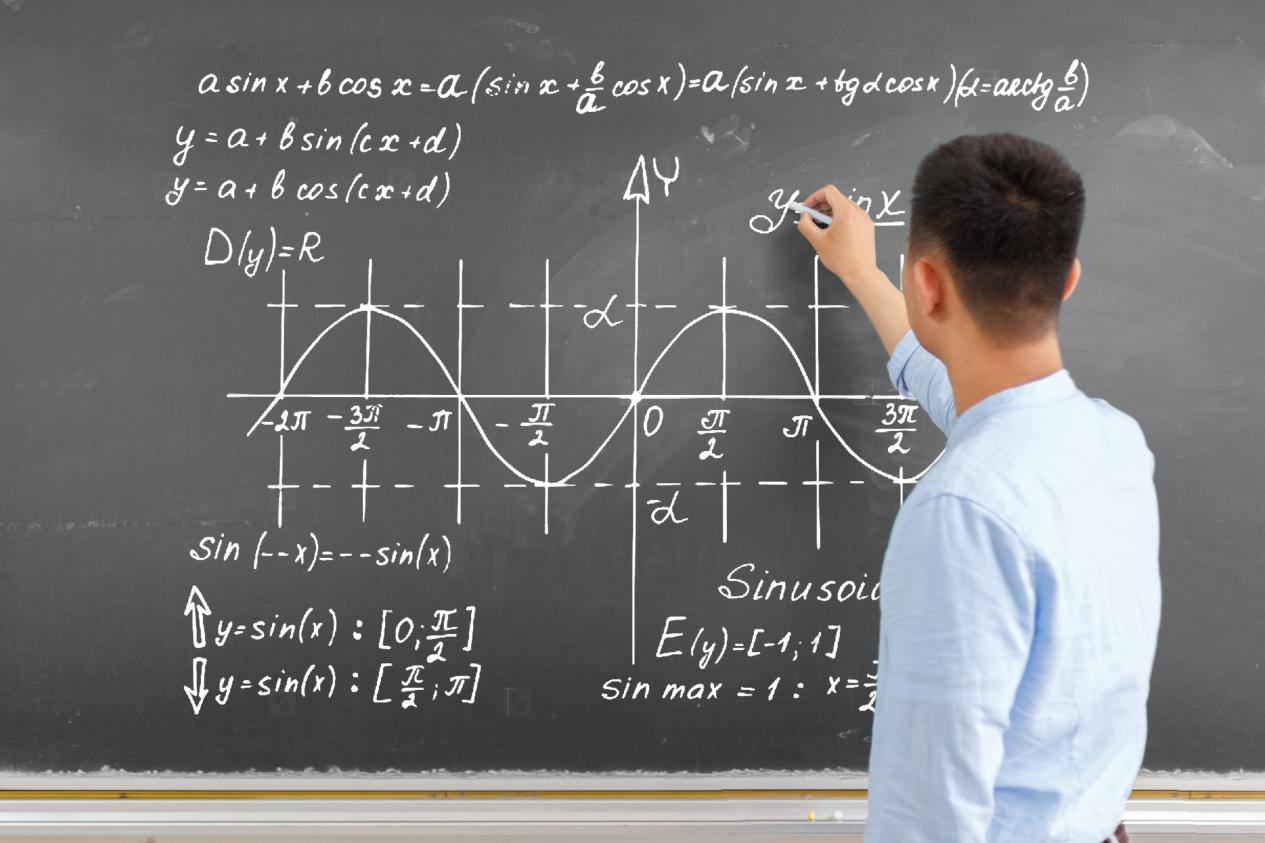 a sin x + b cos x = a (sin x + b/a cos x) = a (sin x + tg α cos x) (α = arctg b/a)
y = a + b sin (cx + d)
y = a + b cos (cx + d)
D(y) = R
Y
x
α
-2π -3π/2 -π -π/2 0 π/2 π 3π/2
-α
sin (--x) = -- sin(x)
y = sin(x) : [0; π/2]
y = sin(x) : [π/2; π]
E(y) = [-1; 1]
sin max = 1 : x =